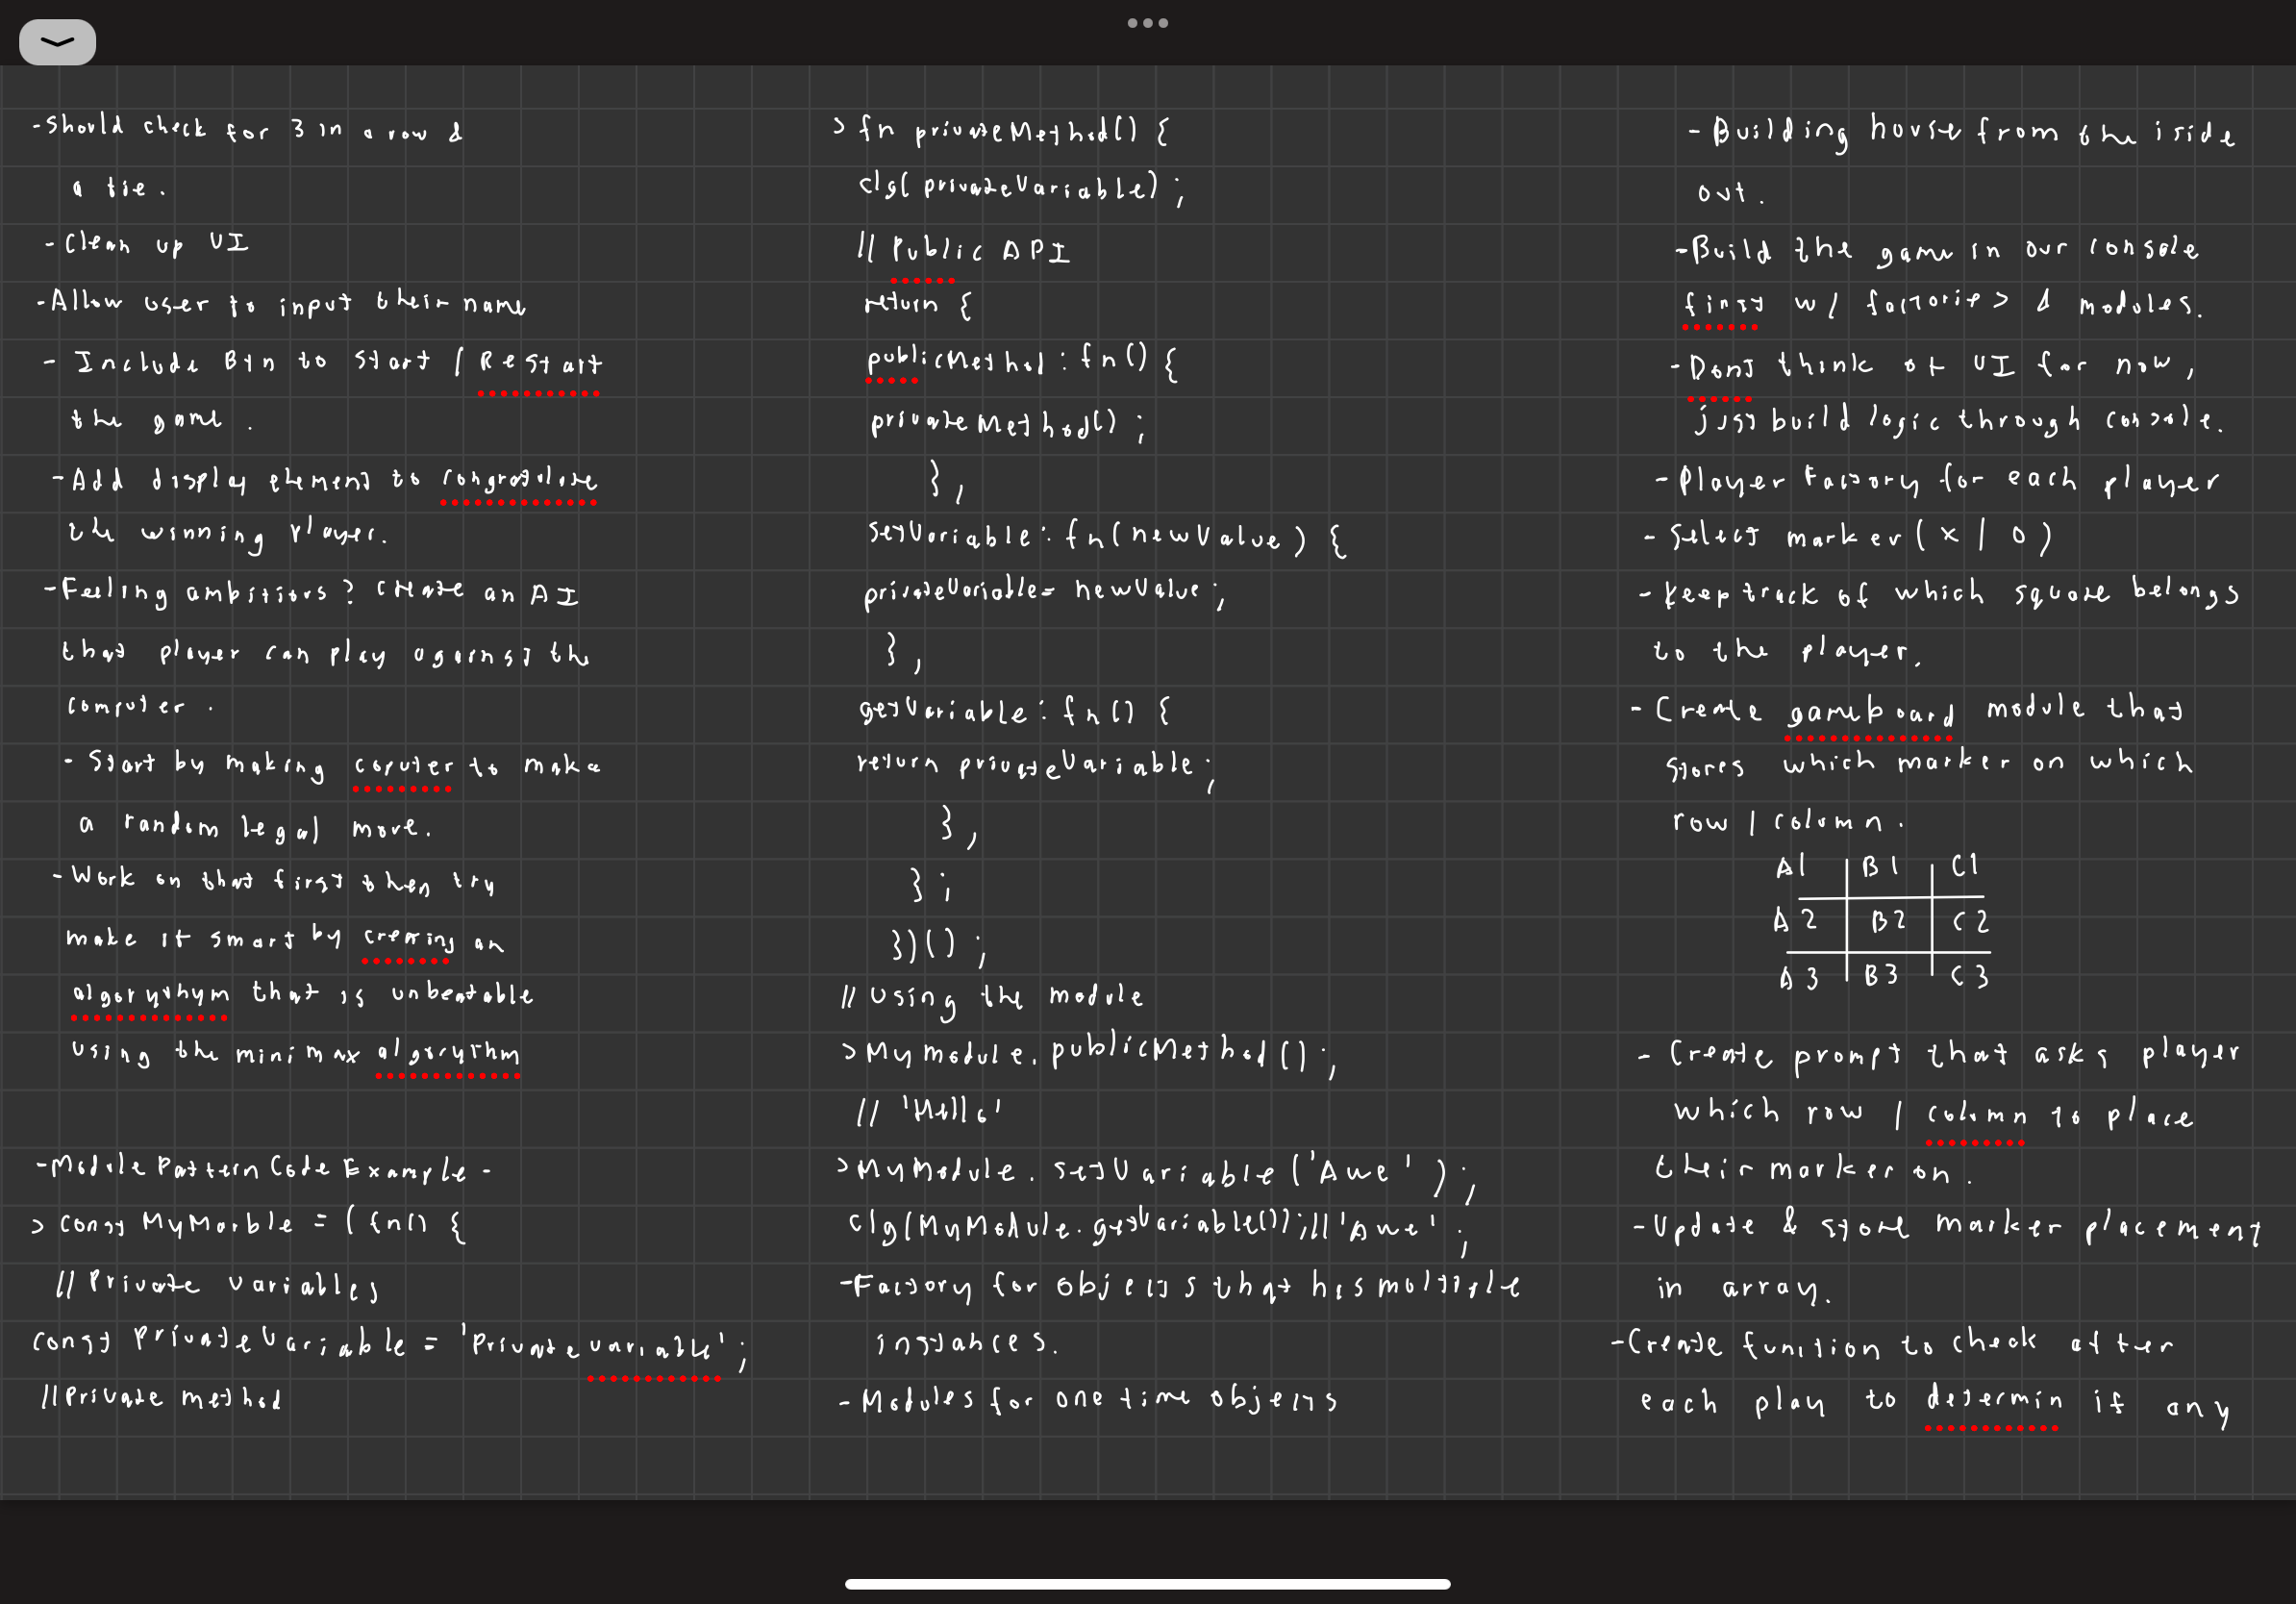 -Should check for 3 in a row &
a tie.
-Clean up UI
-Allow user to input their name
- Include Btn to start / Restart
the game.
-Add display element to congratulate
the winning player.
-Feeling ambitious? create an AI
that player can play against the
computer.
- Start by making coputer to make
a random legal move.
-Work on that first then try
make it smart by creating an
algorythym that is unbeatable
using the minimax algorythm
-Module Pattern Code Example-
> const MyMarble = (fn() {
// Private variables
const PrivateVariable = 'Private variable';
//Private method
> fn privateMethod() {
clg( privateVariable);
// Public API
return {
publicMethod: fn() {
privateMethod();
},
setVariable: fn(newValue) {
privateVariable= newValue;
},
getVariable: fn() {
return privateVariable;
},
};
})();
// Using the module
>Mymodule.publicMethod();
// 'Hello'
>MyModule.setVariable('Awe');
clg(MyModule.getVariable());//'Awe';
-Factory for objects that has multiple
instances.
- Modules for one time objects
-Building house from the iside
out.
-Build the game in our console
first w/ factories & modules.
-Dont think of UI for now,
just build logic through console.
-Player Factory for each player
-Select marker (x | o)
-Keep track of which square belongs
to the player.
-Create gameboard module that
stores which marker on which
row / column.
A1 B1 C1
A2 B2 C2
A3 B3 C3
- Create prompt that asks player
which row / column to place
their marker on.
-Update & store marker placement
in array.
-Create function to check after
each play to determin if any